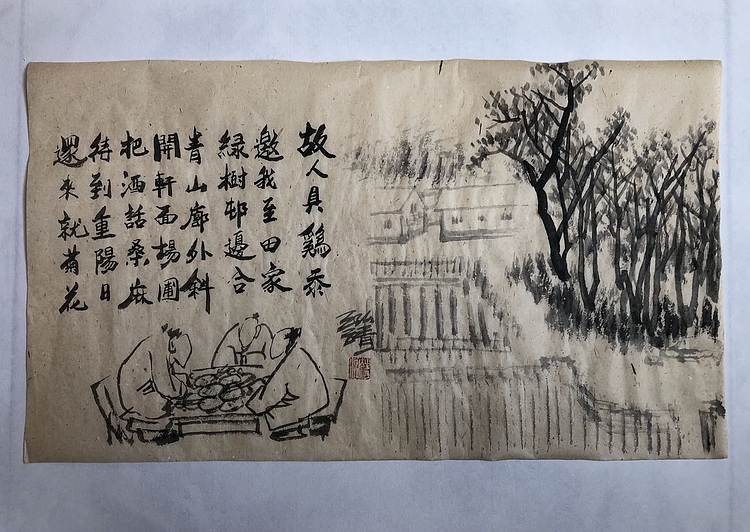 故人具鷄黍
邀我至田家
綠樹邨邊合
青山廓外斜
開軒面場圃
把酒話桑麻
待到重陽日
還來就菊花